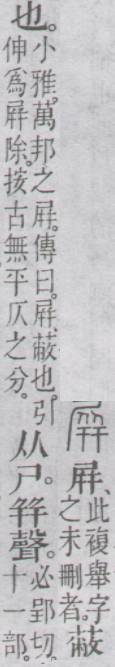 屛、此複舉字之未刪者。蔽
也。小雅。萬邦之屛。傳曰。屛、蔽也。引伸爲屛除。按古無平仄之分。从尸。幷聲。必郢切。十一部。